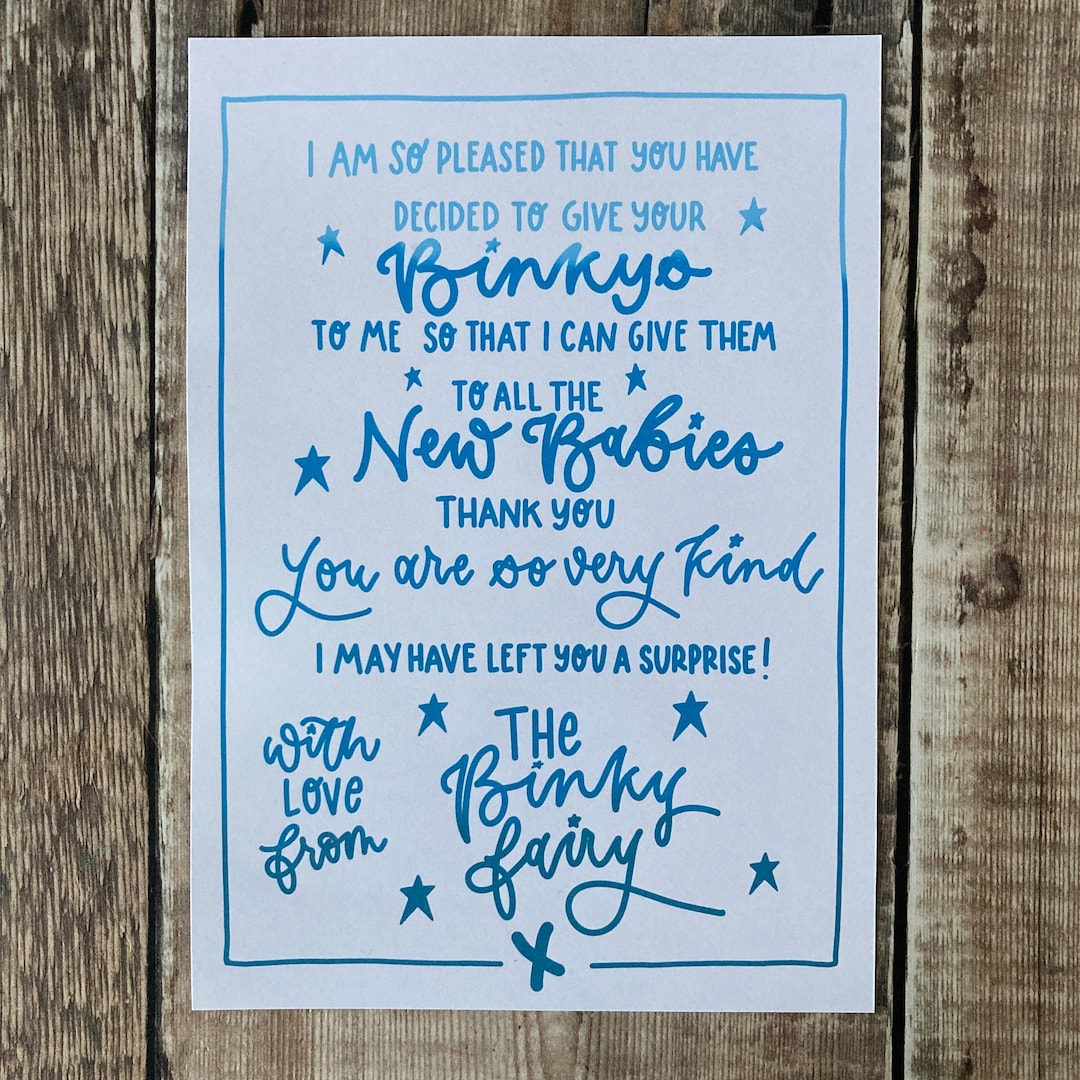 I AM SO PLEASED THAT YOU HAVE
DECIDED TO GIVE YOUR
Binkys
TO ME SO THAT I CAN GIVE THEM
TO ALL THE
New Babies
THANK YOU
You are so very kind
I MAY HAVE LEFT YOU A SURPRISE!
with
LOVE
from
THE
Binky
fairy
X